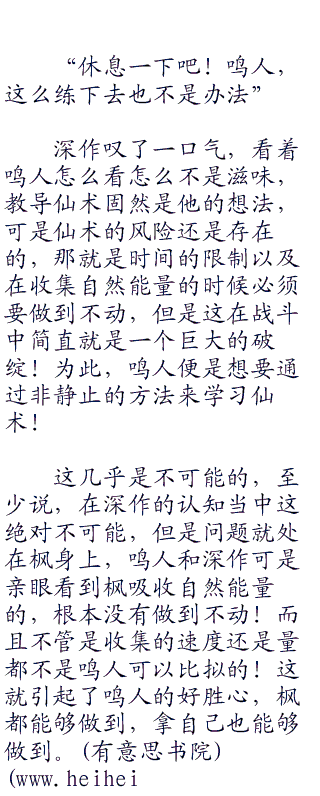 “休息一下吧！鸣人，
这么练下去也不是办法”
深作叹了一口气，看着
鸣人怎么看怎么不是滋味，
教导仙术固然是他的想法，
可是仙术的风险还是存在
的，那就是时间的限制以及
在收集自然能量的时候必须
要做到不动，但是这在战斗
中简直就是一个巨大的破
绽！为此，鸣人便是想要通
过非静止的方法来学习仙
术！
这几乎是不可能的，至
少说，在深作的认知当中这
绝对不可能，但是问题就处
在枫身上，鸣人和深作可是
亲眼看到枫吸收自然能量
的，根本没有做到不动！而
且不管是收集的速度还是量
都不是鸣人可以比拟的！这
就引起了鸣人的好胜心，枫
都能够做到，拿自己也能够
做到。(有意思书院)
(www.heihei